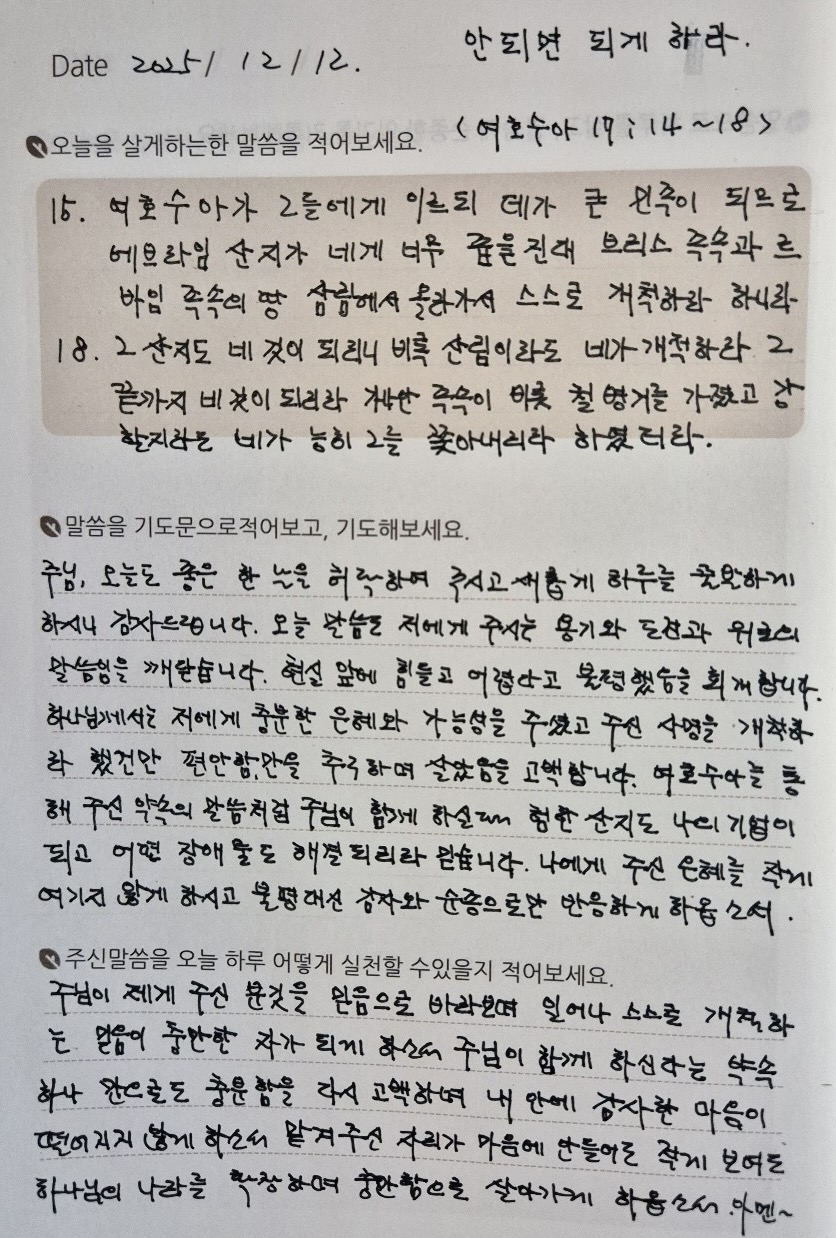 안되면 되게 하라.
Date 2025/ 12/12.
오늘을 살게하는한 말씀을 적어보세요. <여호수아 17:14~18>
15. 여호수아가 그들에게 이르되 네가 큰 민족이 되므로
에브라임 산지가 네게 너무 좁을진대 브리스 족속과 르
바임 족속의 땅 삼림에서 올라가서 스스로 개척하라 하니라
18. 그 산지도 네 것이 되리니 비록 산림이라도 네가 개척하라 그
끝까지 네 것이 되리라 가나안 족속이 비록 철 병거를 가졌고 강
할지라도 네가 능히 그들 쫓아내리라 하였더라.
말씀을 기도문으로적어보고, 기도해보세요.
주님, 오늘도 좋은 한 날을 허락하여 주시고 새롭게 하루를 출발하게
하시니 감사드립니다. 오늘 말씀도 저에게 주시는 용기와 도전과 위로의
말씀임을 깨닫습니다. 현실 앞에 힘들고 어렵다고 불평했음을 회개합니다.
하나님께서는 저에게 충분한 은혜와 가능성을 주셨고 주신 사명을 개척하
라 했건만 편안함만을 추구하며 살았음을 고백합니다. 여호수아를 통
해 주신 약속의 말씀처럼 주님이 함께 하실때 험한 산지도 나의 기업이
되고 어떤 장애물도 해결되리라 믿습니다. 나에게 주신 은혜를 작게
여기지 않게 하시고 불평대신 감사와 순종으로만 반응하게 하옵소서.
주신말씀을 오늘 하루 어떻게 실천할 수있을지 적어보세요.
주님이 제게 주신 모든것을 믿음으로 바라보며 일어나 스스로 개척하
는 믿음이 충만한 자가 되게 하소서 주님이 함께 하신다는 약속
하나 만으로도 충분함을 다시 고백하며 내 안에 감사한 마음이
떨어지지 않게 하소서 맡겨주신 자리가 마음에 안들어도 작게 보여도
하나님의 나라를 확장하며 충만함으로 살아가게 하옵소서. 아멘~